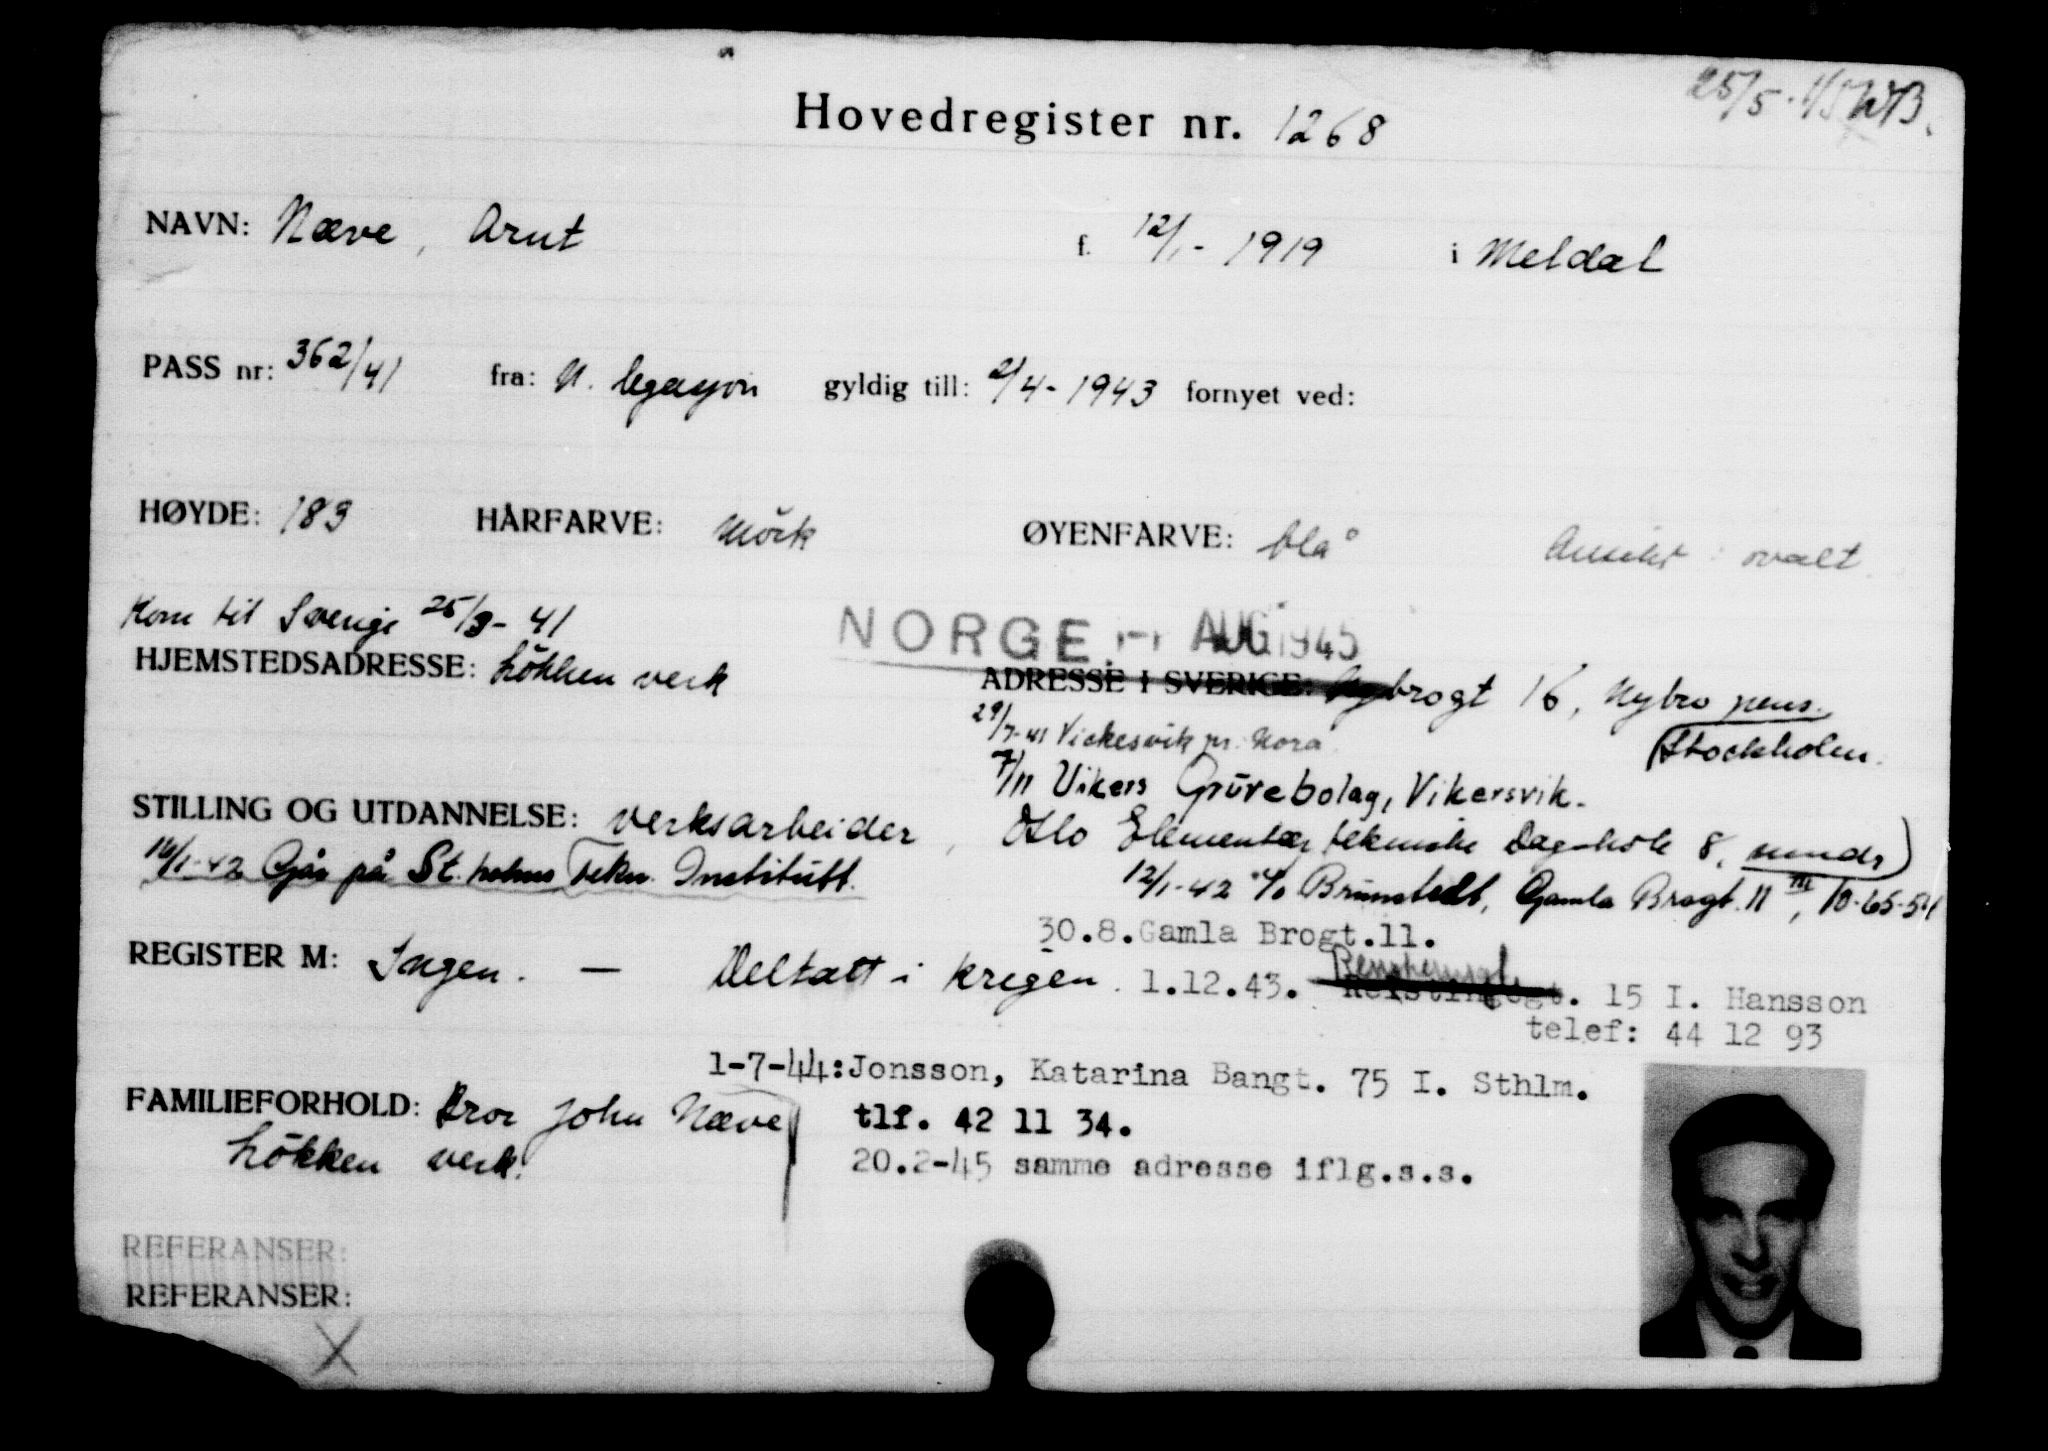 25/5-45 WB.
Hovedregister nr. 1268
NAVN: Næve, Arnt f. 12/1-1919 i Meldal
PASS nr: 362/41 fra: N. legasjon gyldig till: 2/4-1943 fornyet ved:
HØYDE: 183 HÅRFARVE: Mörk ØYENFARVE: blå Ansikt: ovalt
Kom til Sverige 25/3-41
NORGE AUG 1945
HJEMSTEDSADRESSE: Lökken verk
ADRESSE I SVERIGE: Nybrogt 16, Nybro pens.
Stockholm.
29/7-41 Vickesvik pr. Nora
7/11 Vikers Grüvebolag, Vikersvik.
STILLING OG UTDANNELSE: verksarbeider, Oslo Elementær tekniske Dagskole
16/1-42 Går på St.holms Tekn. Institutt.
12/1-42 c/o Brunstedt, Gamla Brogt. 11 III, 10-65-51
30.8. Gamla Brogt.11.
REGISTER M: Ingen. — Deltatt i krigen.
1.12.43. 15 I. Hansson
telef: 44 12 93
1-7-44: Jonsson, Katarina Bangt. 75 I. Sthlm.
tlf. 42 11 34.
20.2-45 samme adresse iflg.s.s.
FAMILIEFORHOLD: Bror John Næve
Lökken verk.
REFERANSER:
REFERANSER:
X